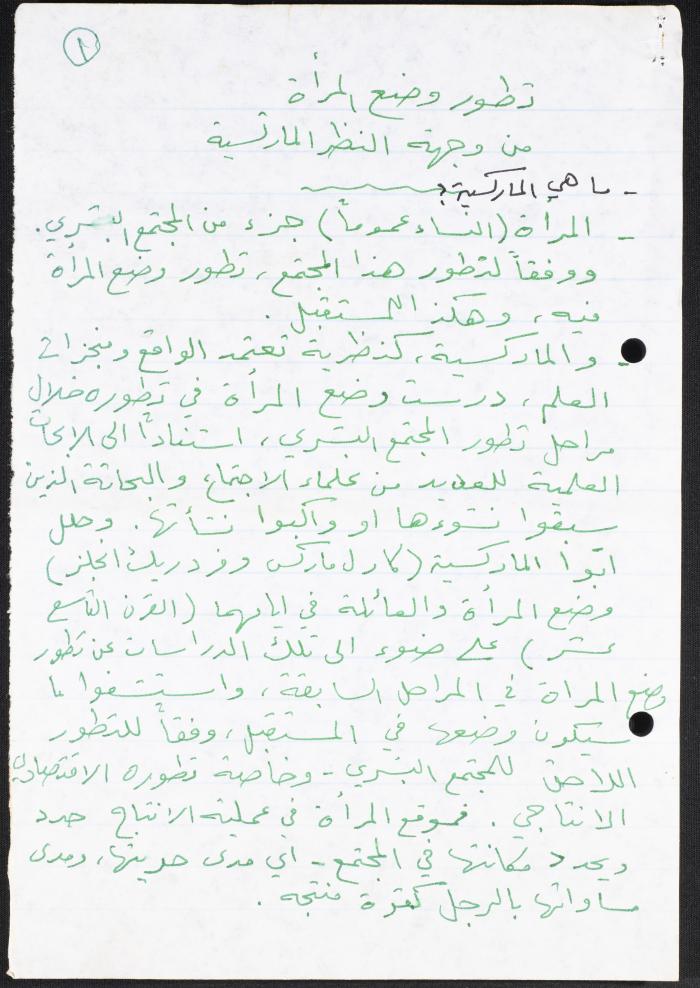 ١
تطور وضع المرأة
من وجهة النظر الماركسية
- ما هي الماركسية؟
- المرأة (النساء عموماً) جزء من المجتمع البشري.
ووفقاً لتطور هذا المجتمع، تطور وضع المرأة
فيه، وهكذا المستقبل.
- والماركسية، كنظرية تعتمد الواقع ومنجزات
العلم، درست وضع المرأة في تطوره خلال
مراحل تطور المجتمع البشري، استناداً الى الابحاث
العلمية للعديد من علماء الاجتماع والبحاثة الذين
سبقوا نشوءها او واكبوا نشأتها. وحلل
ابوا الماركسية (كارل ماركس وفردريك انجلز)
وضع المرأة والعائلة في ايامهما (القرن التاسع
عشر) على ضوء الى تلك الدراسات عن تطور
وضع المراة في المراحل السابقة، واستشفوا ما
سيكون وضعها في المستقبل، وفقاً للتطور
اللاحق للمجتمع البشري - وخاصة تطوره الاقتصادي
الانتاجي. فموقع المرأة في عملية الانتاج حدد
ويحدد مكانتها في المجتمع - اي مدى حريتها، ومدى
مساواتها بالرجل كقوة منتجه.